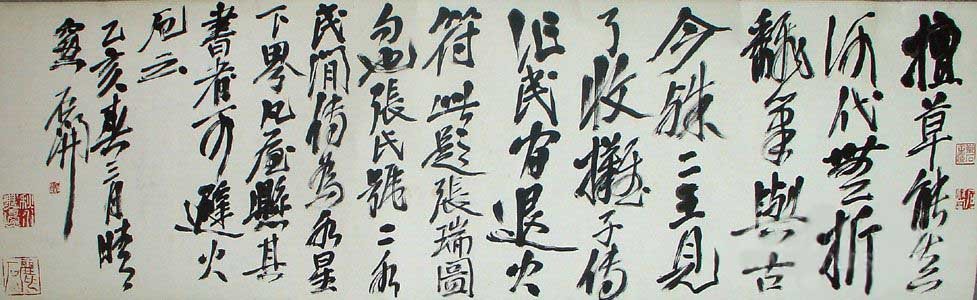 擅草能
代無折
翻筆與古
今殊二王見
了收攤子傳
民間退火
符此題張瑞圖
句也張氏號二水
民間傳為水星
下界凡屋懸其
書者可避火
厄云
乙亥春三月晴
窗石開